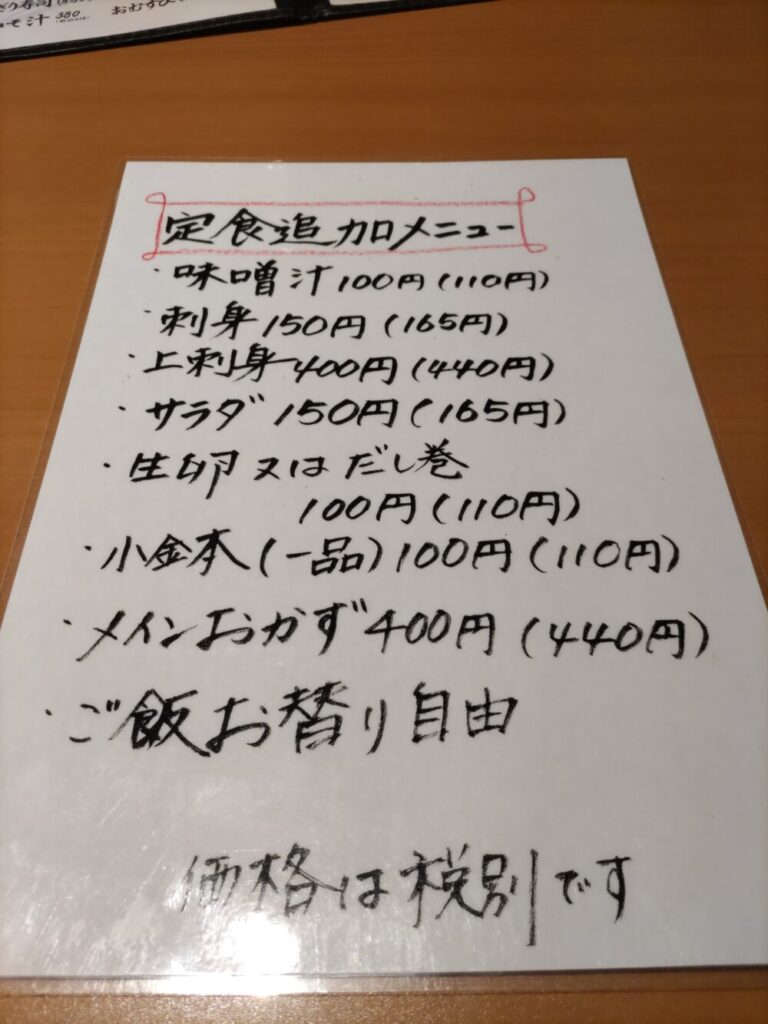 そ汁 380
おむすび
定食追加メニュー
・味噌汁100円(110円)
・刺身150円(165円)
・上刺身400円(440円)
・サラダ150円(165円)
・生卵又はだし巻
100円(110円)
・小金本(一品)100円(110円)
・メインおかず400円(440円)
・ご飯お替り自由
価格は税別です